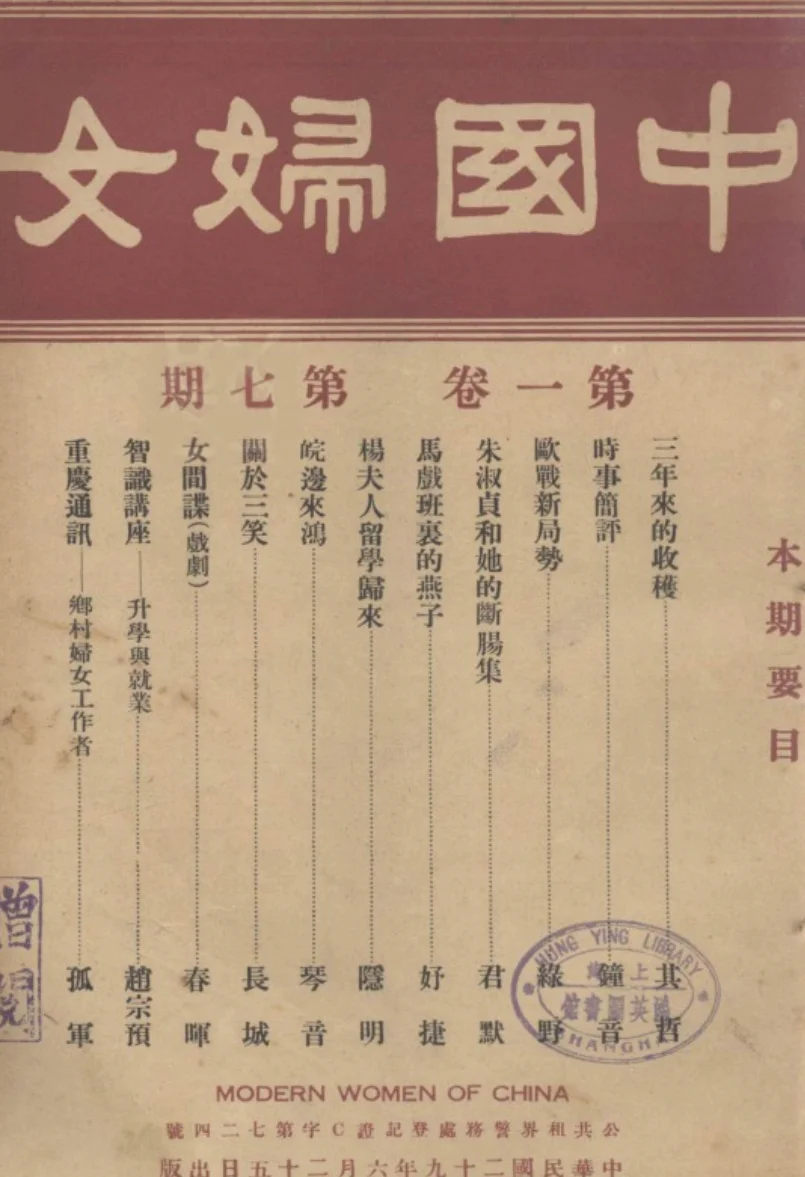 中國婦女
第一卷 第七期
本期要目
三年來的收穫 其哲
時事簡評 鐘音
歐戰新局勢 綠野
朱淑貞和她的斷腸集 君默
馬戲班裏的燕子 妤捷
楊夫人留學歸來 隱明
皖邊來鴻 琴音
關於三笑 長城
女間諜(戲劇) 春暉
智識講座——升學與就業 趙宗預
重慶通訊——鄉村婦女工作者 孤軍
HUNG YING LIBRARY
上海
鴻英圖書館
SHANGHAI
MODERN WOMEN OF CHINA
公共租界警務處登記證C字第七二四號
中華民國二十九年六月二十五日出版